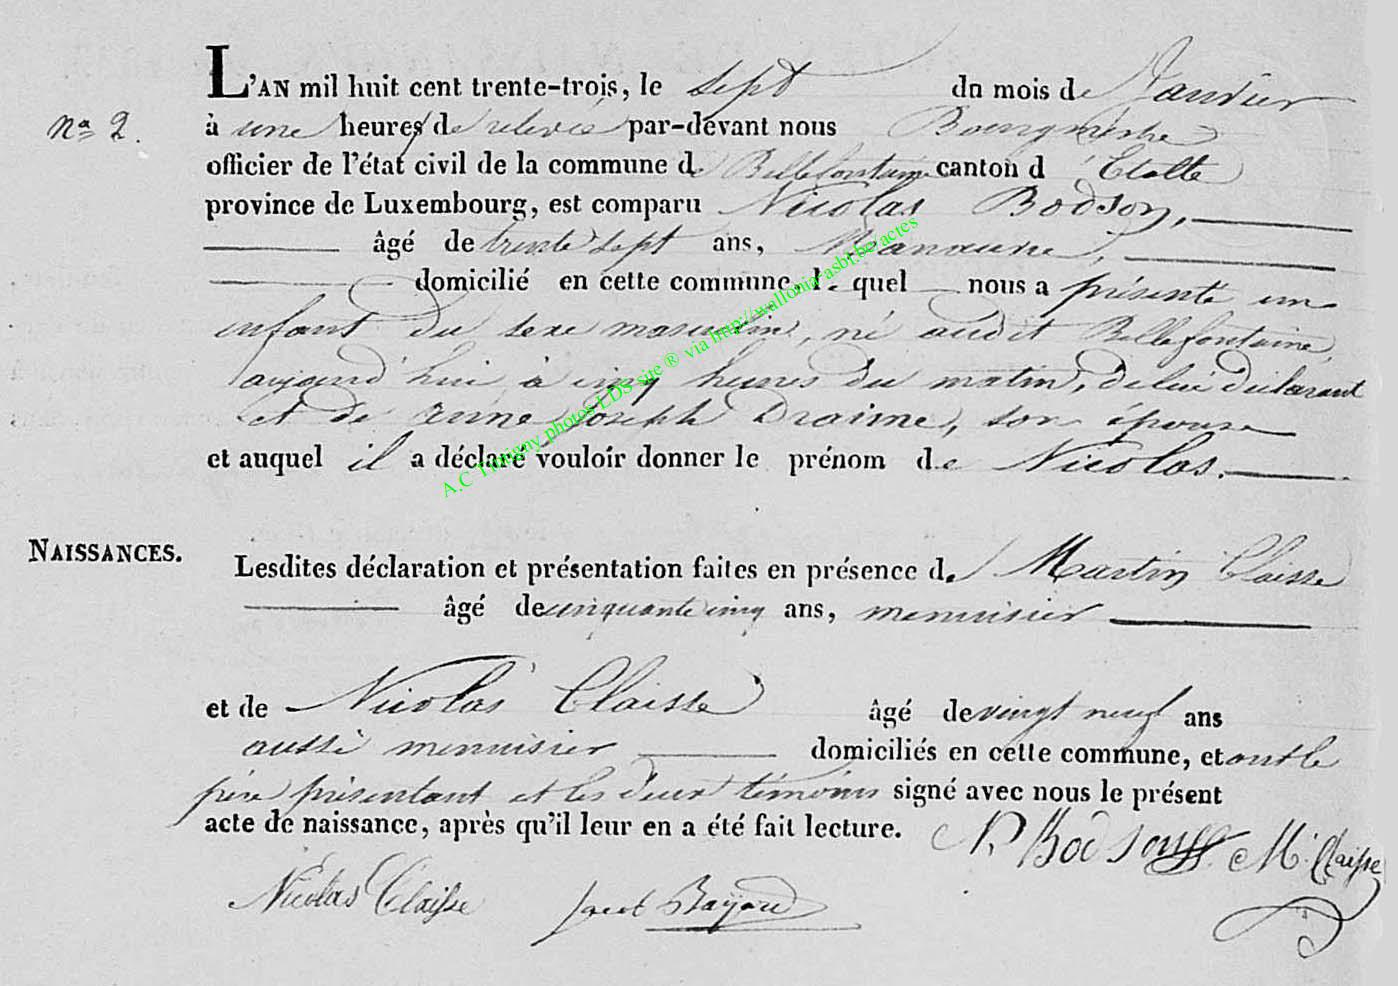 L'AN mil huit cent trente-trois, le sept du mois de Janvier
nº 2.
à une heures de relevée par-devant nous Bourgmestre
officier de l'état civil de la commune de Bellefontaine canton d'Etalle
province de Luxembourg, est comparu Nicolas Bodson,
âgé de trente sept ans, Manœuvre,
domicilié en cette commune, le quel nous a présenté un
enfant du sexe masculin, né audit Bellefontaine,
aujourd'hui à cinq heures du matin, de lui déclarant
et de Anne Joseph Draime, son épouse
et auquel il a déclaré vouloir donner le prénom de Nicolas.
NAISSANCES.
Lesdites déclaration et présentation faites en présence de Martin Claisse
âgé de cinquante cinq ans, menuisier
et de Nicolas Claisse âgé de vingt neuf ans
aussi menuisier domiciliés en cette commune, et ont le
père présentant et les deux témoins signé avec nous le présent
acte de naissance, après qu'il leur en a été fait lecture.
N. Bodson M. Claisse
Nicolas Claisse Bayard
A.C Tintigny photos LDS site ® via http://wallonia-asbl.be/actes